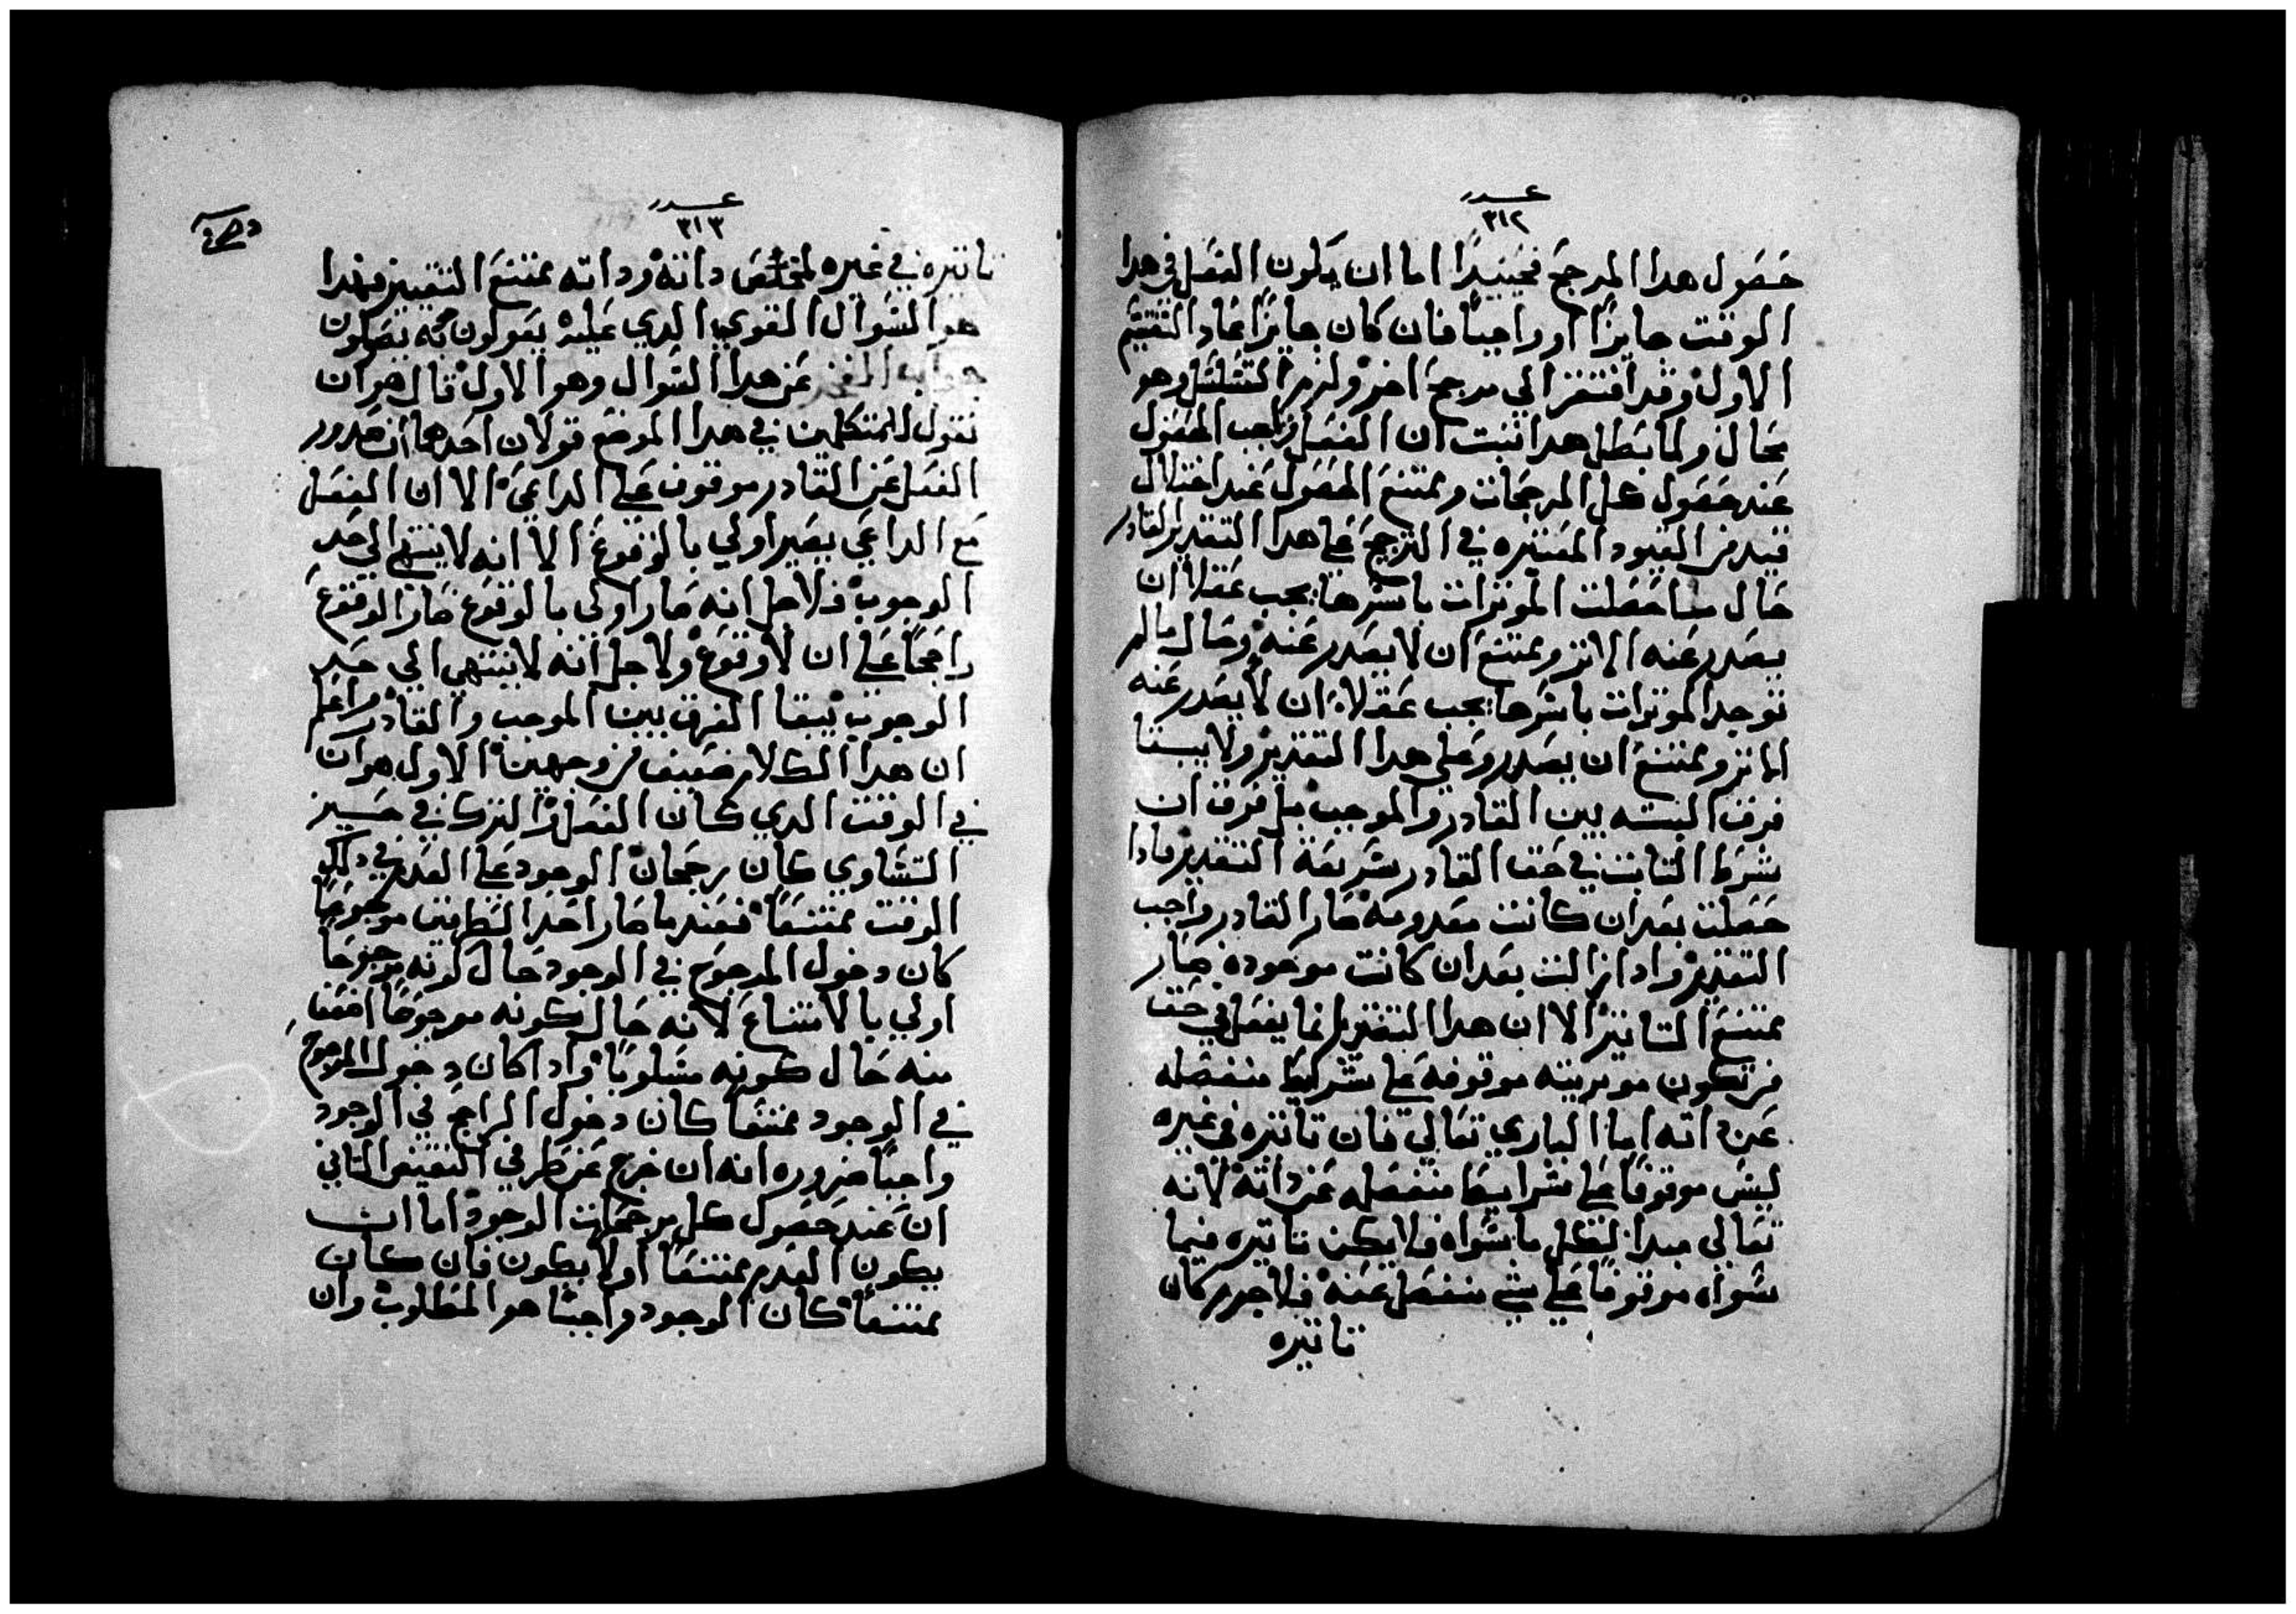 عدد
٣١٢
حصول هدا المرجح فحينيدًا اما ان يكون الفعل في هدا
الوقت جايزًا او واجبًا فان كان جايزًا عاد التقسيم
الاول وقد افتقر الي مرجح اخر ولزم التسلسل وهو
محال ولما بطل هدا ثبت ان الفعل واجب الحصول
عند حصول كل المرجحات وممتنع الحصول عند اختلال
قيد من القيود المعتبره في الترجيح علي هدا التقدير القادر
حال ما حصلت الموترات باسرها يجب عقلا ان
يصدر عنه الاتر وممتنع ان لا يصدر عنه وحال ما لم
توجد الموترات باسرها يجب عقلا ان لا يصدر عنه
الاتر وممتنع ان يصدر وعلي هدا التقدير ولا يبقا
فرق البته بين القادر والموجب بل فرق ان
شرط التاتير في حق القادر سريعة التقدير فادا
حصلت بعد ان كانت معدومه صار القادر واجب
التقدير وادا زالت بعد ان كانت موجوده صار
ممتنع التاتير الا ان هدا التقدير انما يفعل في حق
من تكون موتريته موقوفه علي شرايط منفصله
عن داته اما الباري تعالي فان تاتيره في غيره
ليس موقوفًا علي شرايط منفصله عن داته لانه
تعالي مبدا لكل ما سواه فلا يكن تاتيره فيما
سواه موقوفًا علي شي منفصل عنه فلا جرم كان
تاتيره
عدد
٣١٣
تاتيره في غيره لمخلص داته وداته ممتنع التغيير فهدا
هو السوال القوي الدي عليه يعولون وبه يصولون
عن هدا السوال وهو الاول قال هو ان
نقول للمتكلمين في هدا الموضع قولان احدهما ان صدور
الفعل عن القادر موقوف علي الداعي الا ان الفعل
مع الداعي يصير اولي بالوقوع الا انه لا ينتهي الي حد
الوجوب فلاجل انه صار اولي بالوقوع صار الوقوع
راجحًا علي ان لا وقوع ولاجل انه لا ينتهي الي حد
الوجوب يبقا الفرق بين الموجب والقادر واعلم
ان هدا الكلام ضعيف من وجهين الاول هو ان
في الوقت الدي كان الفعل والترك في حيز
التساوي كان رجحان الوجود علي العدم في دلك
الوقت ممتنعًا فعندما صار احد الطرفين مرجوحًا
كان دخول المرجوح في الوجود حال كونه مرجوحًا
اولي بالامتناع لانه حال كونه مرجوحًا اضعفا
منه حال كونه مسلوبًا وادا كان دخول المرجوح
في الوجود ممتنعًا كان دخول الراجح في الوجود
واجبًا ضروره انه ان خرج عن طرفي النقيض التاني
ان عند حصول كل مرجحات الوجود اما ان
يكون العدم ممتنعًا اولا يكون فان كان
ممتنعًا كان الوجود واجبًا هو المطلوب وان